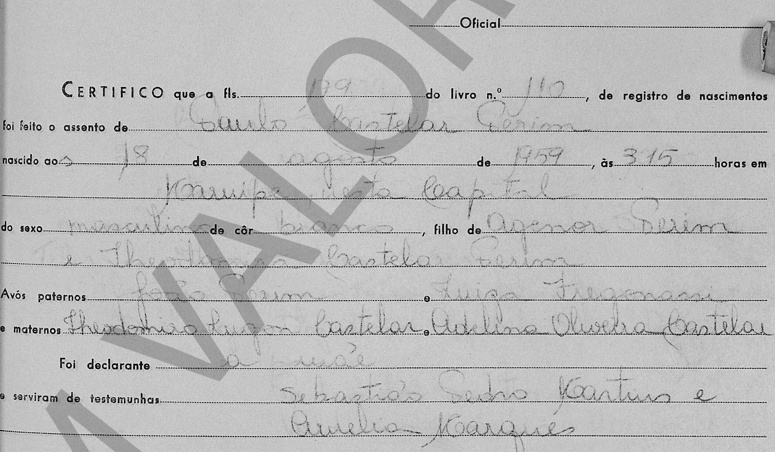 Oficial
CERTIFICO que a fls. 179 do livro n.º 110, de registro de nascimentos
foi feito o assento de Paulo Castelar Perim
nascido aos 18 de agosto de 1959, às 3:15 horas em
nesta Capital
do sexo masculino de côr branca, filho de Agenor Perim
e Castelar Perim
Avós paternos João Perim e Luiza Fregonani
e maternos Castelar e Adelina Oliveira Castelar
Foi declarante a mãe
e serviram de testemunhas Sebastião Pedro Martins e
Aurelia Marques
A VALOR